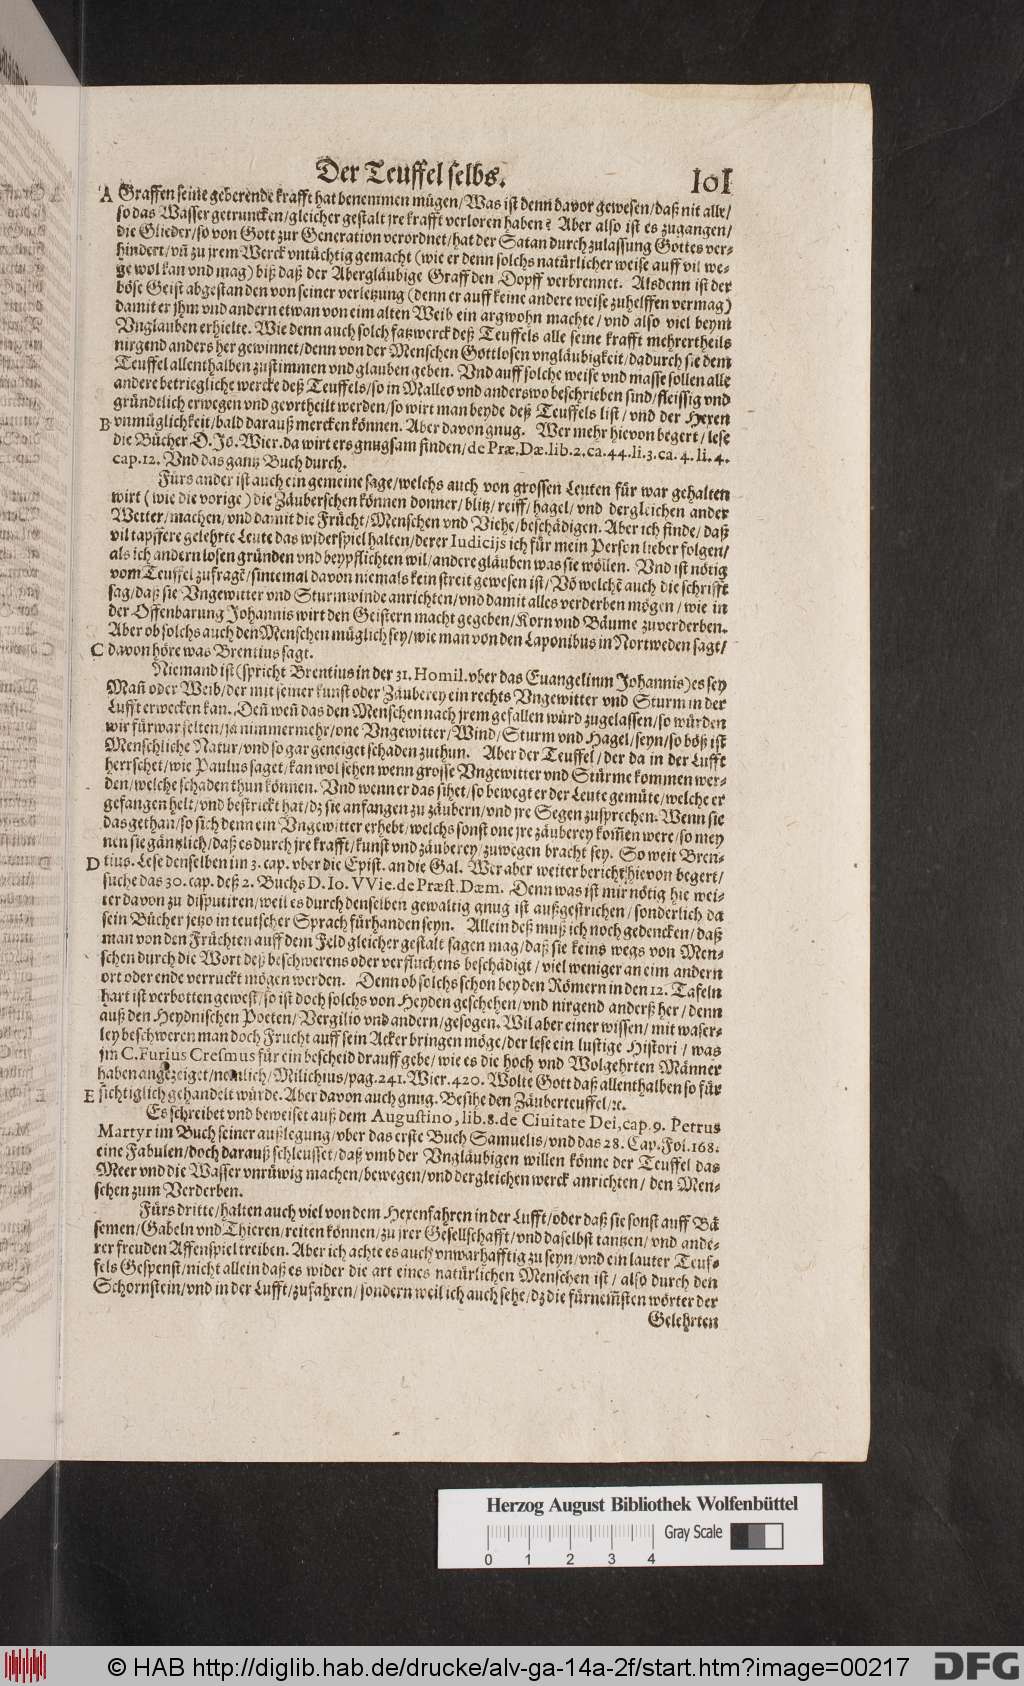 Der Teuffel selbs.
101
A Graffen seine geberende krafft hat benemmen mügen/Was ist denn davor gewesen/daß nit alle/
so das Wasser getruncken/gleicher gestalt jre krafft verloren haben? Aber also ist es zugangen/
die Glieder/so von Gott zur Generation verordnet/hat der Satan durch zulassung Gottes ver-
hindert/vñ zu jrem Werck vntüchtig gemacht (wie er denn solchs natürlicher weise auff vil we-
ge wol kan vnd mag) biß daß der Abergläubige Graff den Dopff verbrennet. Alsdenn ist der
böse Geist abgestanden von seiner verletzung (denn er auff keine andere weise zuhelffen vermag)
damit er jhm vnd andern etwan von eim alten Weib ein argwohn machte/vnd also viel beym
Vnglauben erhielte. Wie denn auch solch fatzwerck deß Teuffels alle seine krafft mehrertheils
nirgend anders her gewinnet/denn von der Menschen Gottlosen vngläubigkeit/dadurch sie dem
Teuffel allenthalben zustimmen vnd glauben geben. Vnd auff solche weise vnd masse sollen alle
andere betriegliche wercke deß Teuffels/so in Malleo vnd anderswo beschrieben sind/fleissig vnd
gründtlich erwegen vnd geurtheilt werden/so wirt man beyde deß Teuffels list/vnd der Hexen
B vnmüglichkeit/bald darauß mercken können. Aber davon gnug. Wer mehr hievon begert/lese
die Bücher D. Jo. Wier. da wirt ers gnugsam finden/de Præ. Dæ. lib. 2. ca. 44. li. 3. ca. 4. li. 4.
cap. 12. Vnd das gantz Buch durch.
Fürs ander ist auch ein gemeine sage/welchs auch von grossen Leuten für war gehalten
wirt (wie die vorige) die Zäuberschen können donner/blitz/reiff/hagel/vnd dergleichen ander
Wetter/machen/vnd damit die Frücht/Menschen vnd Viehe/beschädigen. Aber ich finde/daß
vil tapffere gelehrte Leute das widerspiel halten/derer Iudicijs ich für mein Person lieber folgen/
als ich andern losen gründen vnd beypflichten wil/andere gläuben was sie wöllen. Vnd ist nötig
vom Teuffel zufragẽ/sintemal davon niemals kein streit gewesen ist/Võ welchẽ auch die schrifft
sag/daß sie Vngewitter vnd Sturmwinde anrichten/vnd damit alles verderben mögen/wie in
der Offenbarung Johannis wirt den Geistern macht gegeben/Korn vnd Bäume zuverderben.
Aber ob solchs auch den Menschen müglich sey/wie man von den Laponibus in Nortweden sagt/
C davon höre was Brentius sagt.
Niemand ist (spricht Brentius in der 31. Homil. vber das Euangelium Johannis) es sey
Mañ oder Weib/der mit seiner kunst oder Zäuberey ein rechts Vngewitter vnd Sturm in der
Lufft erwecken kan. Deñ weñ das den Menschen nach jrem gefallen würd zugelassen/so würden
wir fürwar selten/ja nimmermehr/one Vngewitter/Wind/Sturm vnd Hagel/seyn/so böß ist
Menschliche Natur/vnd so gar geneiget schaden zuthun. Aber der Teuffel/der da in der Lufft
herrschet/wie Paulus saget/kan wol sehen wenn grosse Vngewitter vnd Stürme kommen wer-
den/welche schaden thun können. Vnd wenn er das sihet/so bewegt er der Leute gemüte/welche er
gefangen helt/vnd bestrickt hat/dz sie anfangen zu zäubern/vnd jre Segen zusprechen. Wenn sie
das gethan/so sich denn ein Vngewitter erhebt/welchs sonst one jre zäuberey kom̃en were/so mey
nen sie gäntzlich/daß es durch jre krafft/kunst vnd zäuberey/zuwegen bracht sey. So weit Bren-
D tius. Lese denselben im 3. cap. vber die Epist. an die Gal. Wer aber weiter bericht hievon begert/
suche das 30. cap. deß 2. Buchs D. Io. VVie. de Præst. Dæm. Denn was ist mir nötig hie wei-
ter davon zu disputiren/weil es durch denselben gewaltig gnug ist außgestrichen/sonderlich da
sein Bücher jetzo in teutscher Sprach fürhanden seyn. Allein deß muß ich noch gedencken/daß
man von den Früchten auff dem Feld gleicher gestalt sagen mag/daß sie keins wegs von Men-
schen durch die Wort deß beschwerens oder verfluchens beschädigt/viel weniger an eim andern
ort oder ende verruckt mögen werden. Denn ob solchs schon bey den Römern in den 12. Tafeln
hart ist verbotten gewest/so ist doch solchs von Heyden geschehen/vnd nirgend anderß her/denn
auß den Heydnischen Poeten/Vergilio vnd andern/gesogen. Wil aber einer wissen/mit waser-
ley beschweren man doch Frucht auff sein Acker bringen möge/der lese ein lustige Histori/was
jm C. Furius Cresmus für ein bescheid drauff gebe/wie es die hoch vnd Wolgehrten Männer
haben angezeiget/nemlich/Milichius/pag. 241. Wier. 420. Wolte Gott daß allenthalben so für
E sichtiglich gehandelt würde. Aber davon auch gnug. Besihe den Zäuberteuffel/ꝛc.
Es schreibet vnd beweiset auß dem Augustino, lib. 8. de Ciuitate Dei, cap. 9. Petrus
Martyr im Buch seiner außlegung/vber das erste Buch Samuelis/vnd das 28. Cap. Fol. 168.
eine Fabulen/doch darauß schleusset/daß vmb der Vngläubigen willen könne der Teuffel das
Meer vnd die Wasser vnrüwig machen/bewegen/vnd dergleichen werck anrichten/den Men-
schen zum Verderben.
Fürs dritte/halten auch viel von dem Hexenfahren in der Lufft/oder daß sie sonst auff Bä
semen/Gabeln vnd Thieren/reiten können/zu jrer Gesellschafft/vnd daselbst tantzen/vnd ande-
rer freuden Affenspiel treiben. Aber ich achte es auch vnwarhafftig zu seyn/vnd ein lauter Teuf-
fels Gespenst/nicht allein daß es wider die art eines natürlichen Menschen ist/also durch den
Schornstein/vnd in der Lufft/zufahren/sondern weil ich auch sehe/dz die fürnem̃sten wörter der
Gelehrten
Herzog August Bibliothek Wolfenbüttel
Gray Scale
0 1 2 3 4
© HAB http://diglib.hab.de/drucke/alv-ga-14a-2f/start.htm?image=00217
DFG